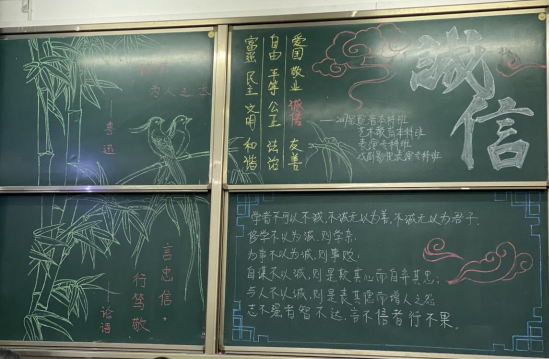 为人之本
——鲁迅
言忠信,
行笃敬
——论语
富强 民主 文明 和谐
自由 平等 公正 法治
爱国 敬业 诚信 友善
誠信
艺术教育本科班
表演专科班
学者不可以不诚,不诚无以为善,不诚无以为君子.
修学不以为诚,则学杂,
为事不以为诚,则事败,
自谋不以诚,则是欺其心而自弃其忠;
与人不以诚,则是丧其德而增人之怨
志不强者智不达,言不信者行不果。